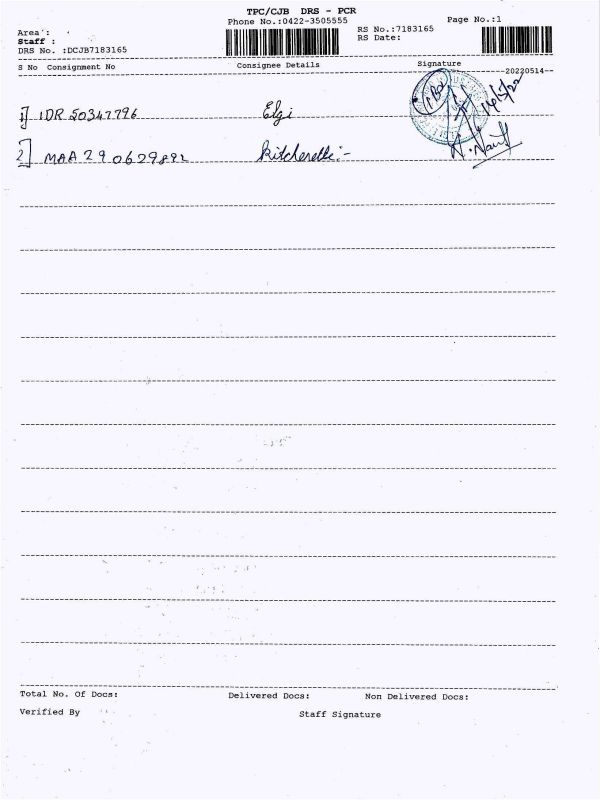 TPC/CJB DRS - PCR
Phone No.:0422-3505555
Page No.:1
Area :
RS No.:7183165
Staff :
RS Date:
DRS No. :DCJB7183165
S No Consignment No Consignee Details Signature
--20220514--
1] IDR 50347796 Elgi
14/5/22
2] MAA 290629892
Total No. Of Docs: Delivered Docs: Non Delivered Docs:
Verified By Staff Signature